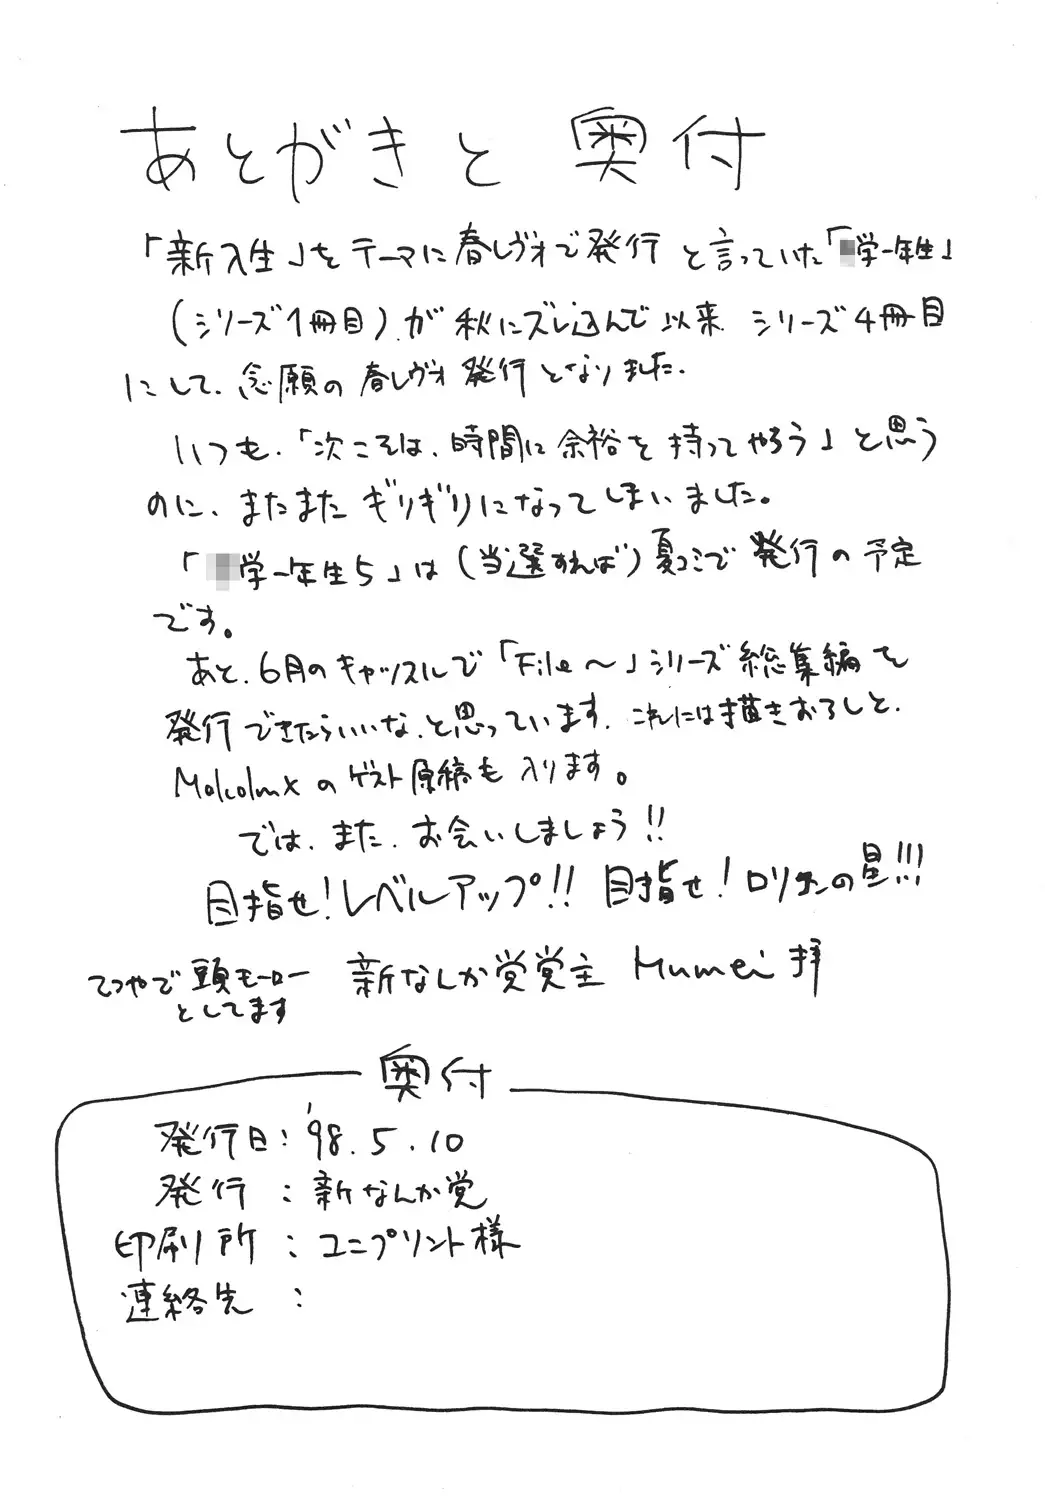 あとがきと 奥付
「新入生」をテーマに春レヴォで発行と言っていた「学一年生」
(シリーズ1冊目)が秋にズレ込んで以来、シリーズ4冊目
にして、念願の春レヴォ発行となりました。
いつも、「次こそは、時間に余裕を持ってやろう」と思う
のに、またまたギリギリになってしまいました。
「学一年生5」は(当選すれば)夏コミで発行の予定
です。
あと、6月のキャッスルで「File〜」シリーズ総集編を
発行できたらいいな、と思っています。これには描きおろしと、
Molcolmxのゲスト原稿も入ります。
では、また、お会いしましょう!!
目指せ!レベルアップ!! 目指せ!ロリ の星!!!
てつやで頭モーロー
としてます
新なんか党党主 Mumei 拝
奥付
発行日:'98.5.10
発行:新なんか党
印刷所:ユニプリント様
連絡先: